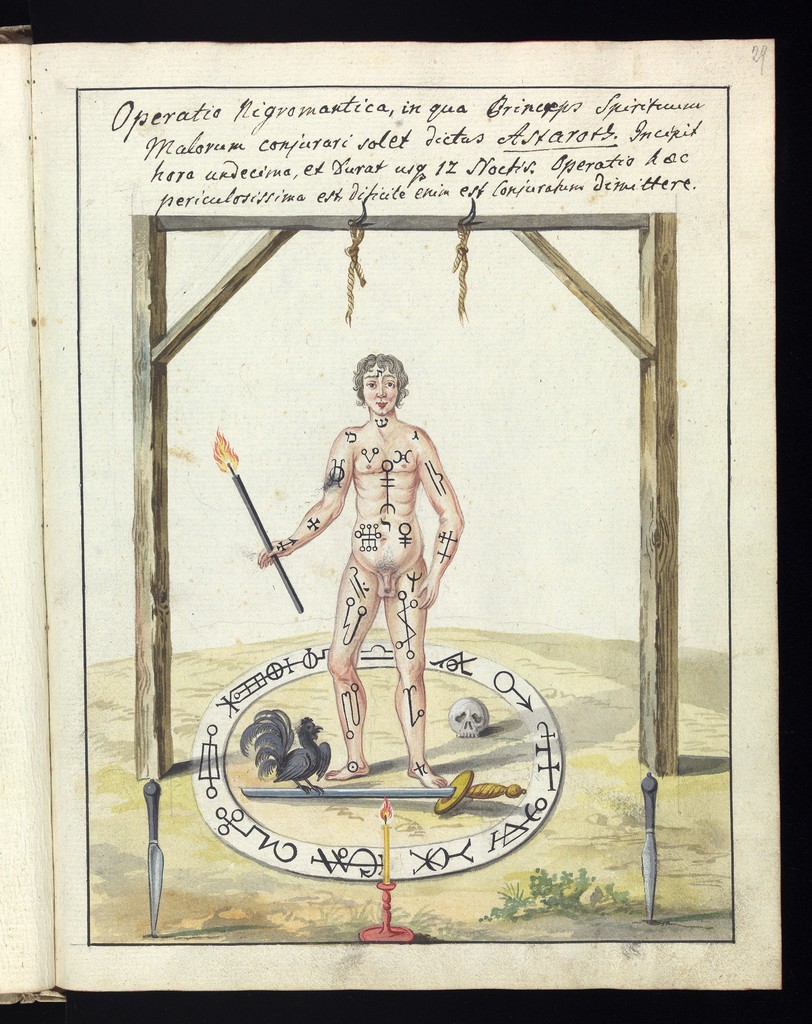 29
Operatio Nigromantica, in qua Princeps Spirituum
Malorum conjurari solet dictus Astaroth. Incipit
hora undecima, et Durat usq 12 Noctis. Operatio hæc
periculosissima est, dificile enim est Conjuratum dimittere.